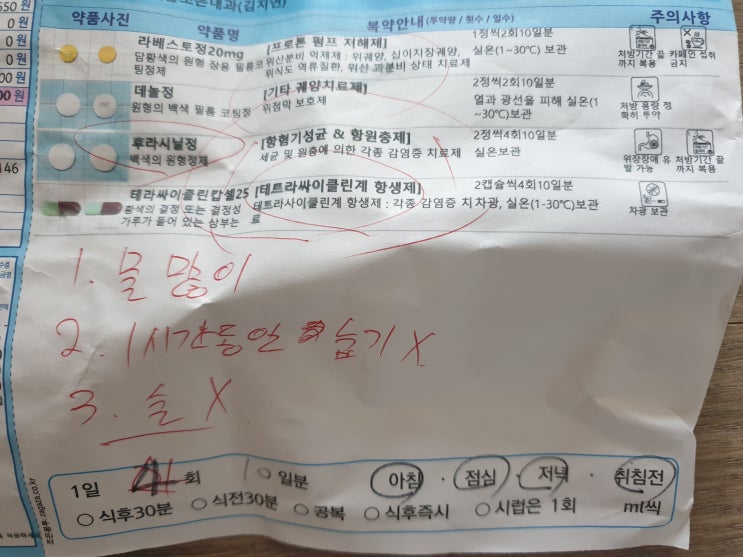 550 원
0 원
0 원
0 원
00 원
00 원
146
약품사진 약품명 복약안내(투약량 / 횟수 / 일수) 주의사항
라베스토정20mg [프로톤 펌프 저해제] 1정씩2회10일분
담황색의 원형 장용 필름코팅정제 위산분비 억제제 : 위궤양, 십이지장궤양, 위식도 역류질환, 위산 과분비 상태 치료제 실온(1~30℃) 보관
처방기간 끝까지 복용 카페인 섭취 금지
데놀정 [기타 궤양치료제] 2정씩2회10일분
원형의 백색 필름 코팅정 위점막 보호제 열과 광선을 피해 실온(1~30℃)보관
처방 용량 정확히 투약
후라시닐정 [항혐기성균 & 항원충제] 2정씩4회10일분
백색의 원형정제 세균 및 원충에 의한 각종 감염증 치료제 실온보관
위장장애 유발 가능 처방기간 끝까지 복용
테라싸이클린캅셀25 [테트라싸이클린계 항생제] 2캅셀씩4회10일분
황색의 결정 또는 결정성 가루가 들어 있는 상부는 테트라사이클린계 항생제 : 각종 감염증 치료 차광, 실온(1-30℃)보관
차광 보관
1. 물 많이
2. 1시간동안 눕기 X
3. 술 X
1일 4회 10일분 아침 · 점심 · 저녁 · 취침전
○ 식후30분 ○ 식전30분 ○ 공복 ○ 식후즉시 ○ 시럽은 1회 ml씩